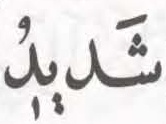 شَديٖدُ